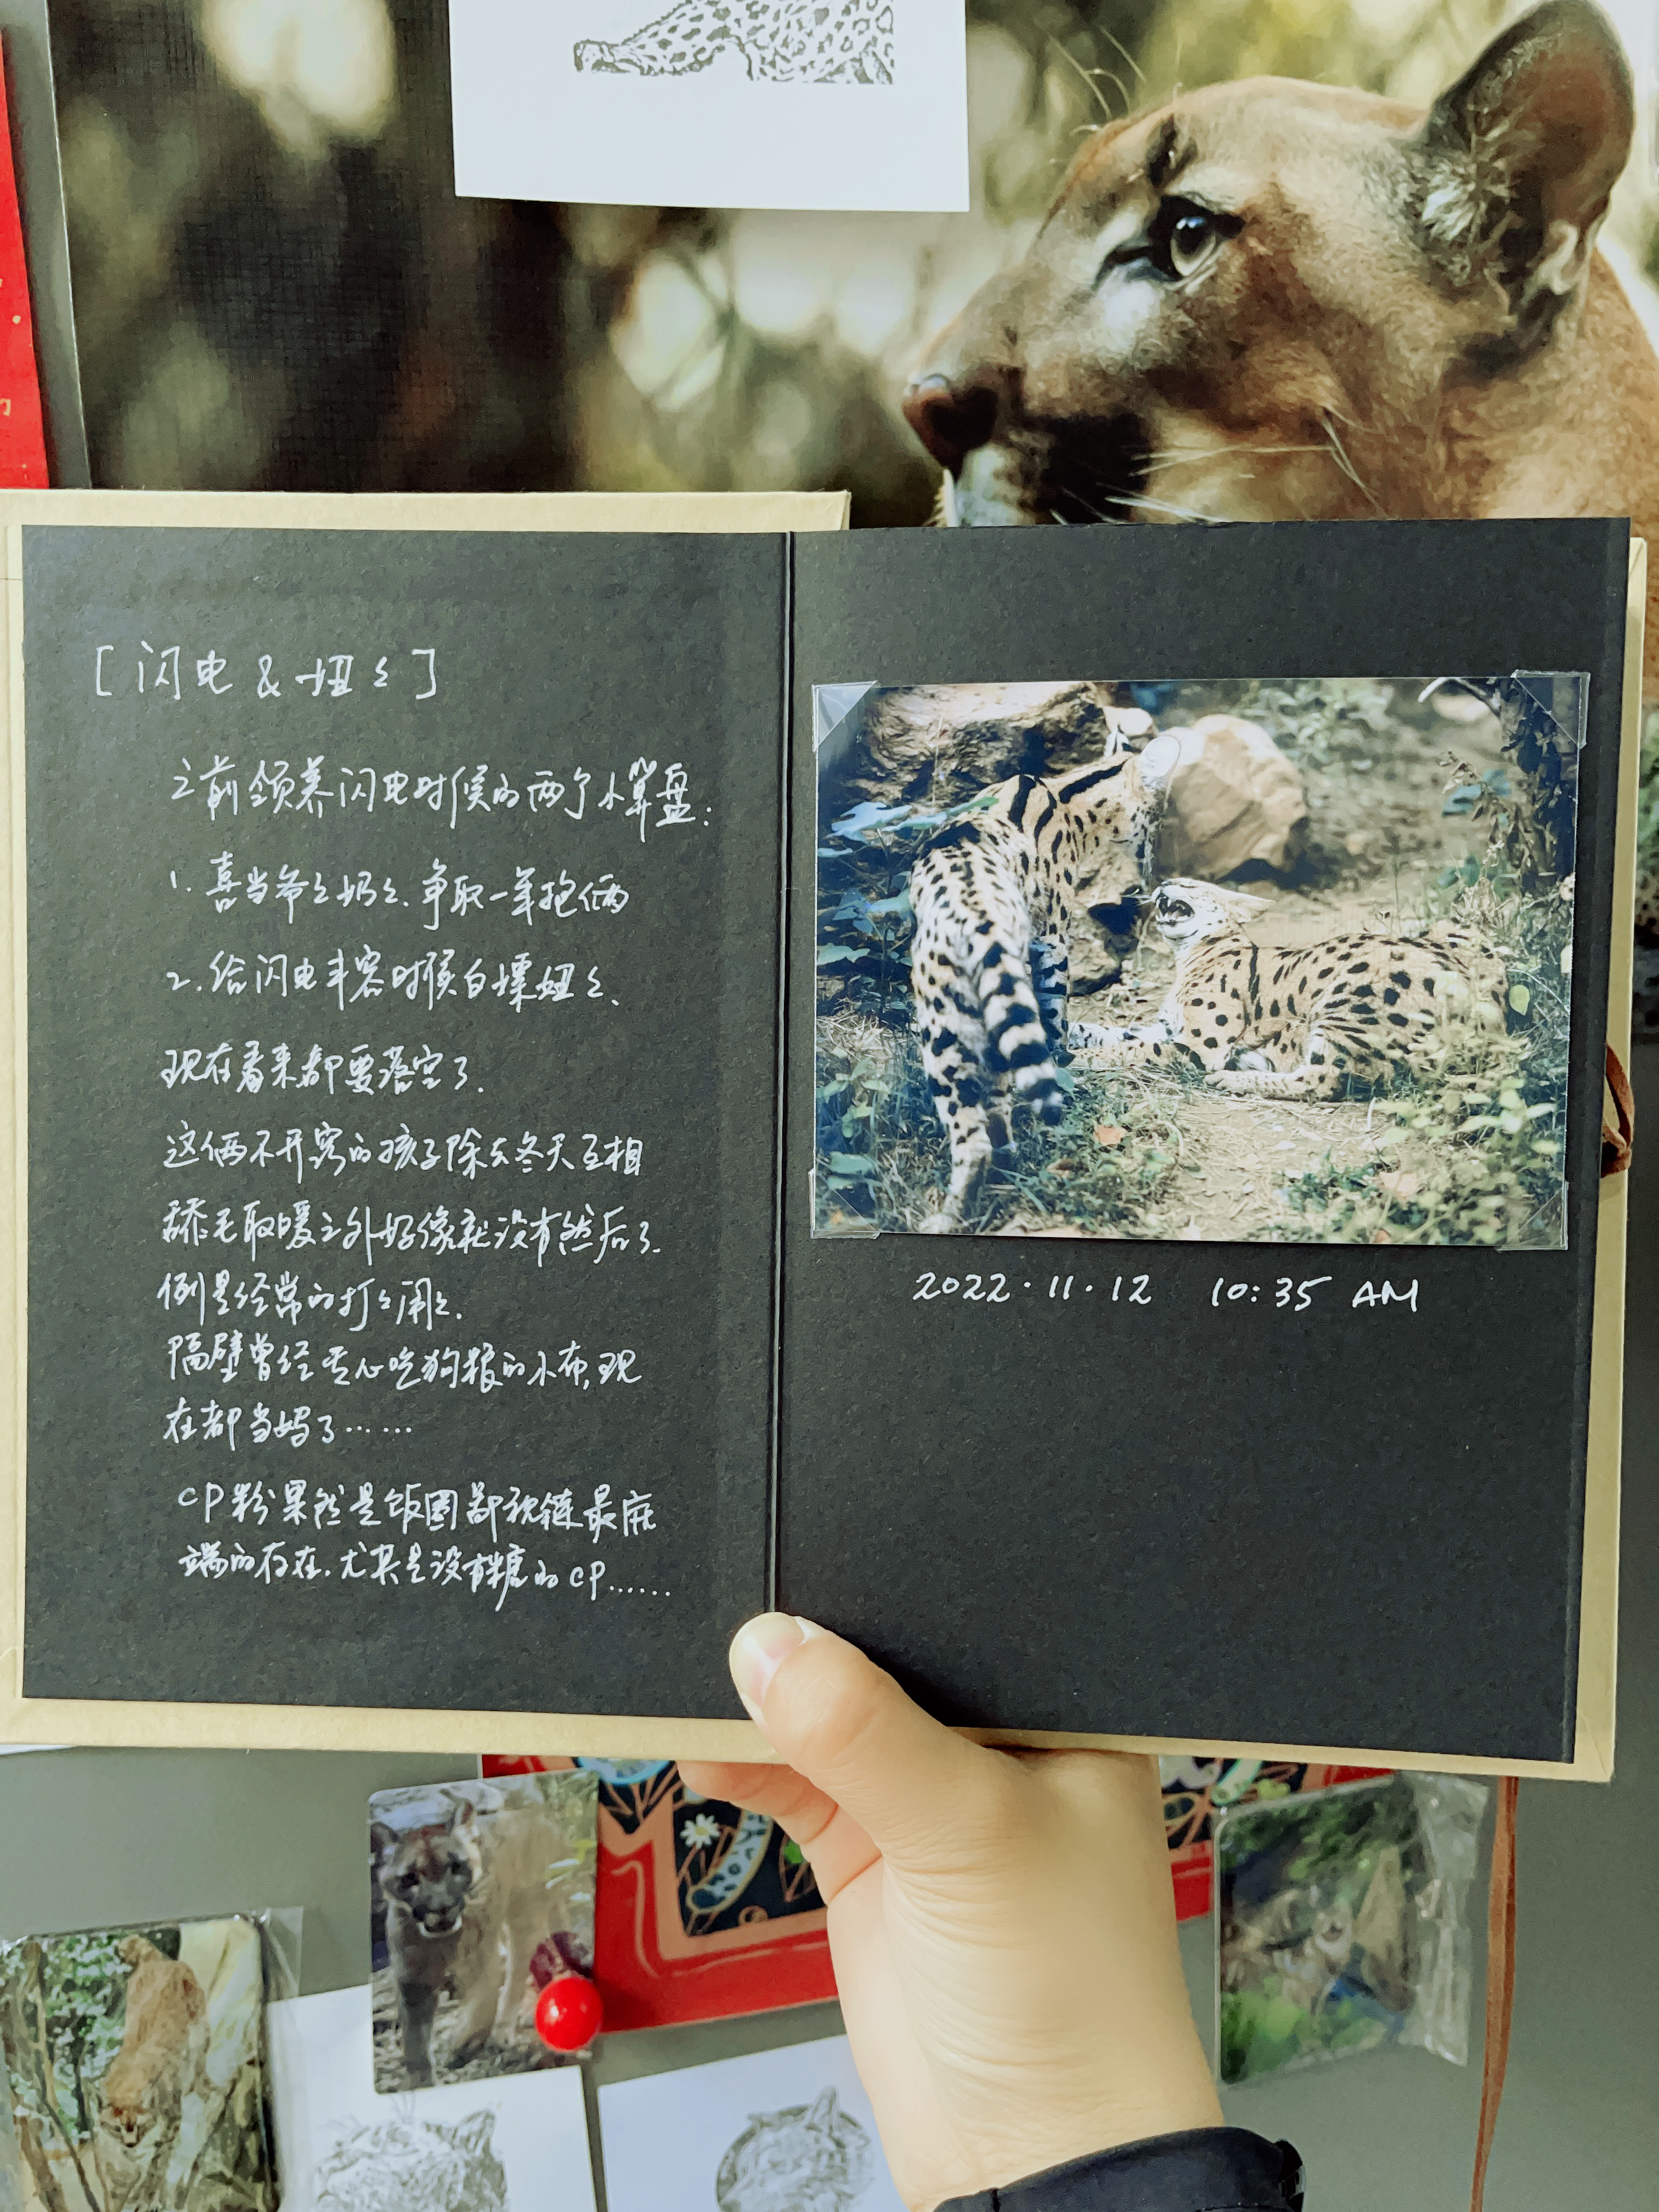 [闪电 & 妞々]
之前领养闪电时候的两个小算盘:
1. 喜当爷々奶々. 争取一年抱俩
2. 给闪电丰容时候白嫖妞々.
现在看来都要落空了.
这俩不开窍的孩子除去冬天互相
舔毛取暖之外好像就没有然后了.
倒是经常的打々闹々.
隔壁曾经专心吃狗粮的小布, 现
在都当妈了……
CP粉果然是饭圈鄙视链最底
端的存在. 尤其是没有糖的CP……
2022·11·12 10:35 AM